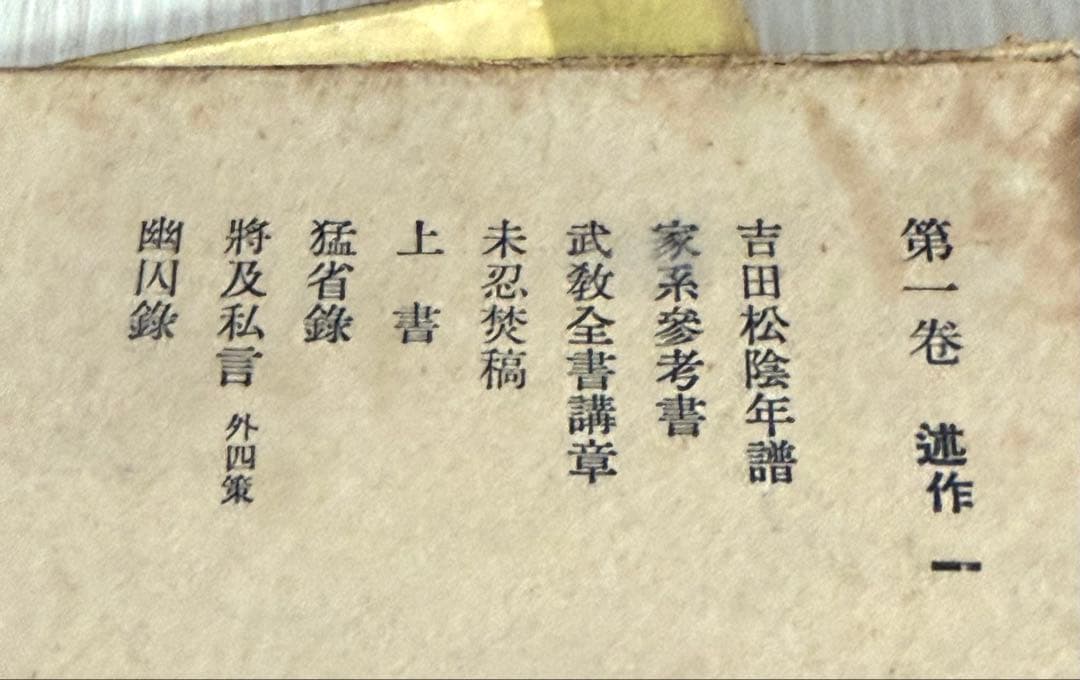 第一卷　述作　一
吉田松陰年譜
家系參考書
武敎全書講章
未忍焚稿
上　書
猛省錄
將及私言 外四策
幽囚錄